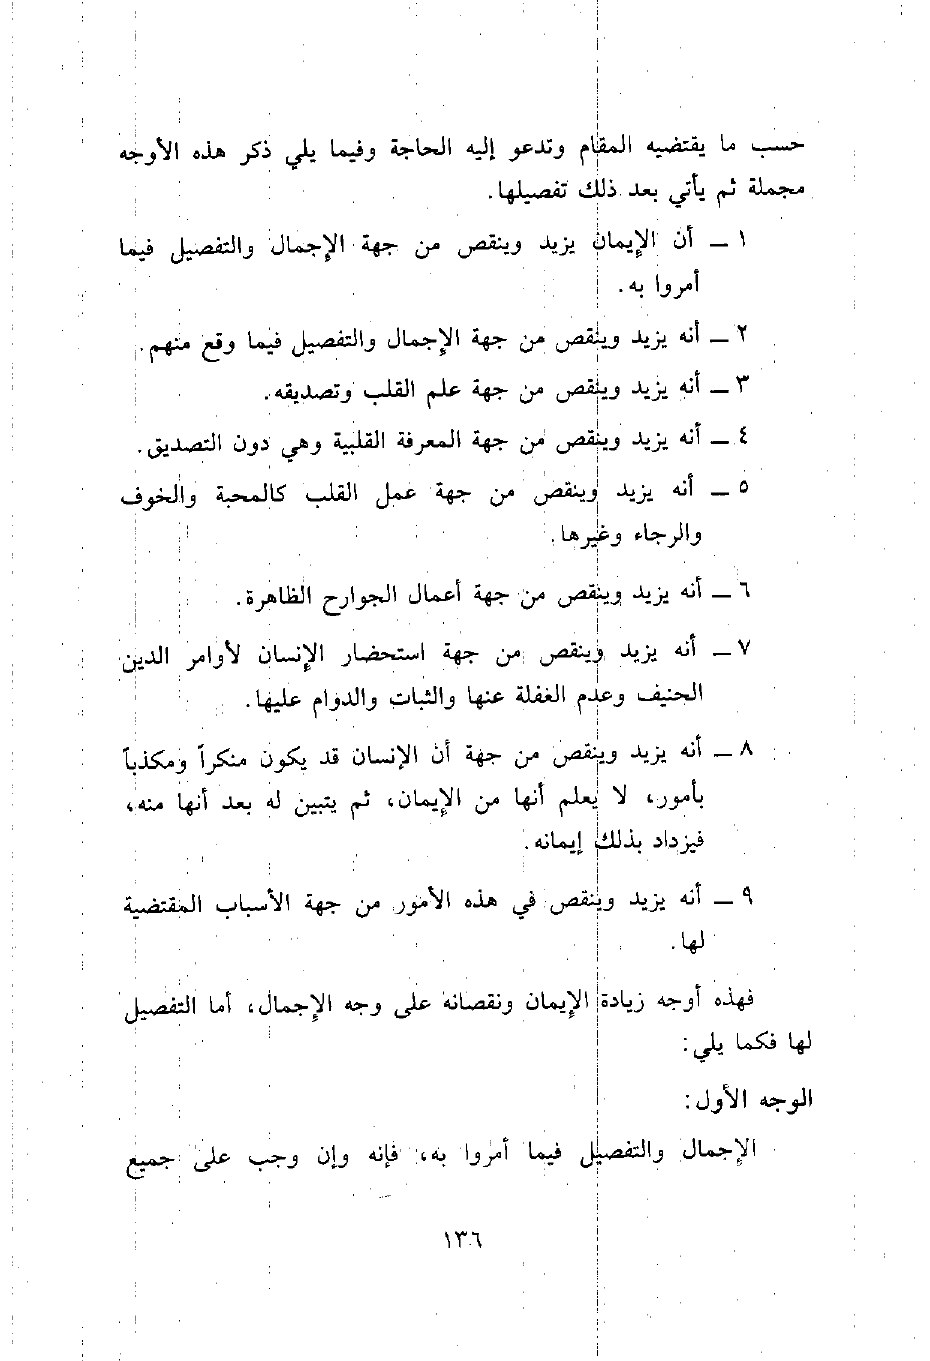 حسب ما يقتضيه المقام وتدعو إليه الحاجة وفيما يلي ذكر هذه الأوجه
مجملة ثم يأتي بعد ذلك تفصيلها.
١ ــ أن الإيمان يزيد وينقص من جهة الإجمال والتفصيل فيما
أمروا به.
٢ ــ أنه يزيد وينقص من جهة الإجمال والتفصيل فيما وقع منهم.
٣ ــ أنه يزيد وينقص من جهة علم القلب وتصديقه.
٤ ــ أنه يزيد وينقص من جهة المعرفة القلبية وهي دون التصديق.
٥ ــ أنه يزيد وينقص من جهة عمل القلب كالمحبة والخوف
والرجاء وغيرها.
٦ ــ أنه يزيد وينقص من جهة أعمال الجوارح الظاهرة.
٧ ــ أنه يزيد وينقص من جهة استحضار الإنسان لأوامر الدين
الحنيف وعدم الغفلة عنها والثبات والدوام عليها.
٨ ــ أنه يزيد وينقص من جهة أن الإنسان قد يكون منكراً ومكذباً
بأمور، لا يعلم أنها من الإيمان، ثم يتبين له بعد أنها منه،
فيزداد بذلك إيمانه.
٩ ــ أنه يزيد وينقص في هذه الأمور من جهة الأسباب المقتضية
لها.
فهذه أوجه زيادة الإيمان ونقصانه على وجه الإجمال، أما التفصيل
لها فكما يلي:
الوجه الأول:
الإجمال والتفصيل فيما أمروا به، فإنه وإن وجب على جميع
١٣٦